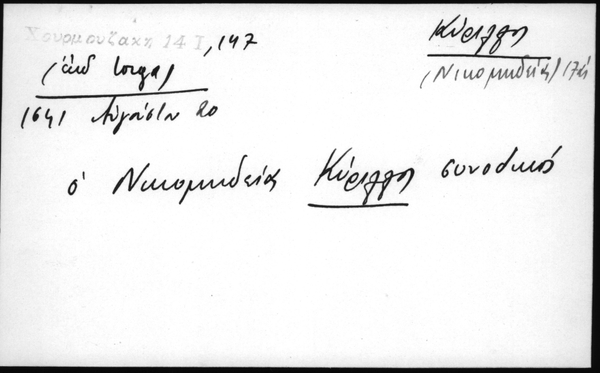 Χουρμουζάκη 14 Ι, 147
Κύριλλος
(Νικομηδείας)
1641 Αὐγούστου 20
ὁ Νικομηδείας Κύριλλος συνοδικῶς